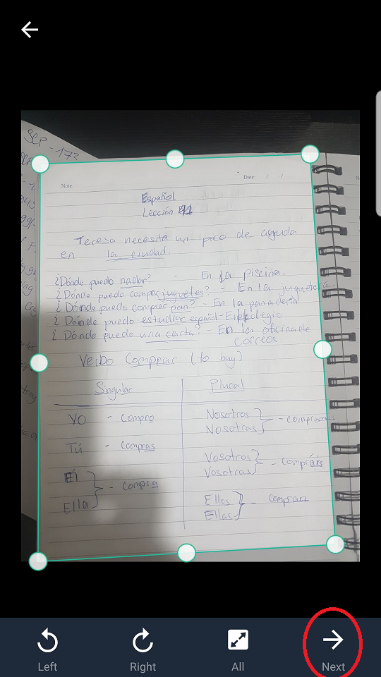 SEP - 173
Date
Español
Lección
Teresa necesita un poco de ayuda
en la ciudad.
¿Dónde puedo nadar? - En la piscina.
¿Dónde puedo comprar juguetes? - En la
¿Dónde puedo comprar pan? - En la panadería
¿Dónde puedo estudiar español - En el
¿Dónde puedo una carta? - En la oficina de
Correos
Verbo Comprar (to buy)
Singular Plural
Yo - compro Nosotros
Nosotras - compramos
Tú - compras Vosotros
Vosotras - compráis
Él
Ella - compra Ellos
Ellas - compran
Left Right All Next